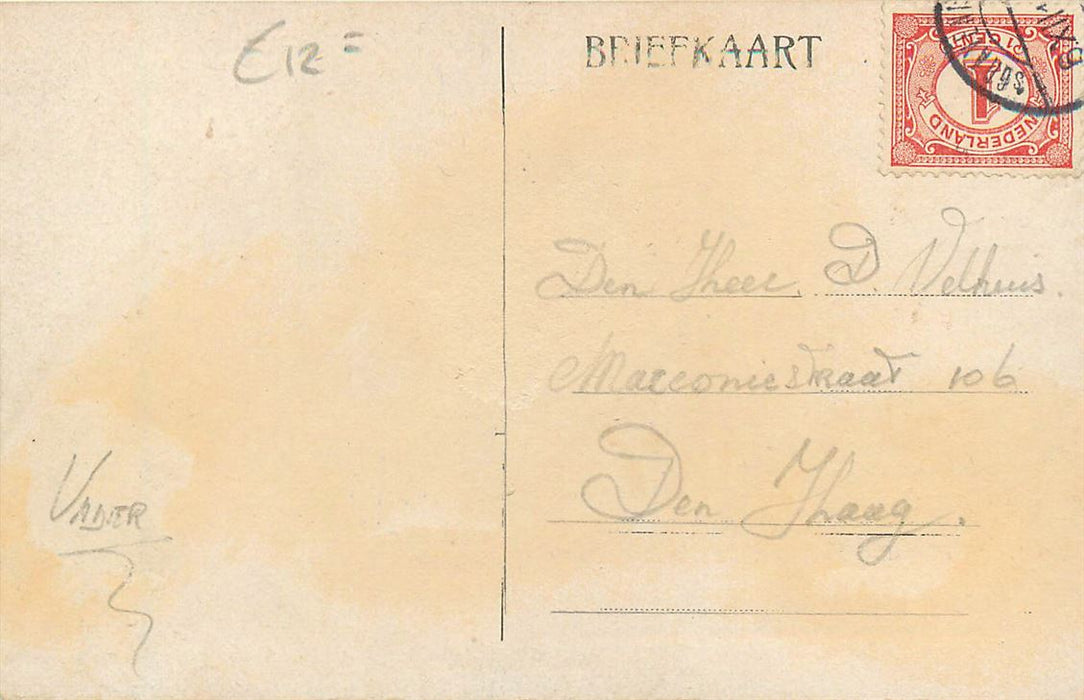 E12=
BRIEFKAART
1 CENT
1
NEDERLAND
Den Heer D. Velhuis.
Marconiestraat 106
Den Haag.
VADER